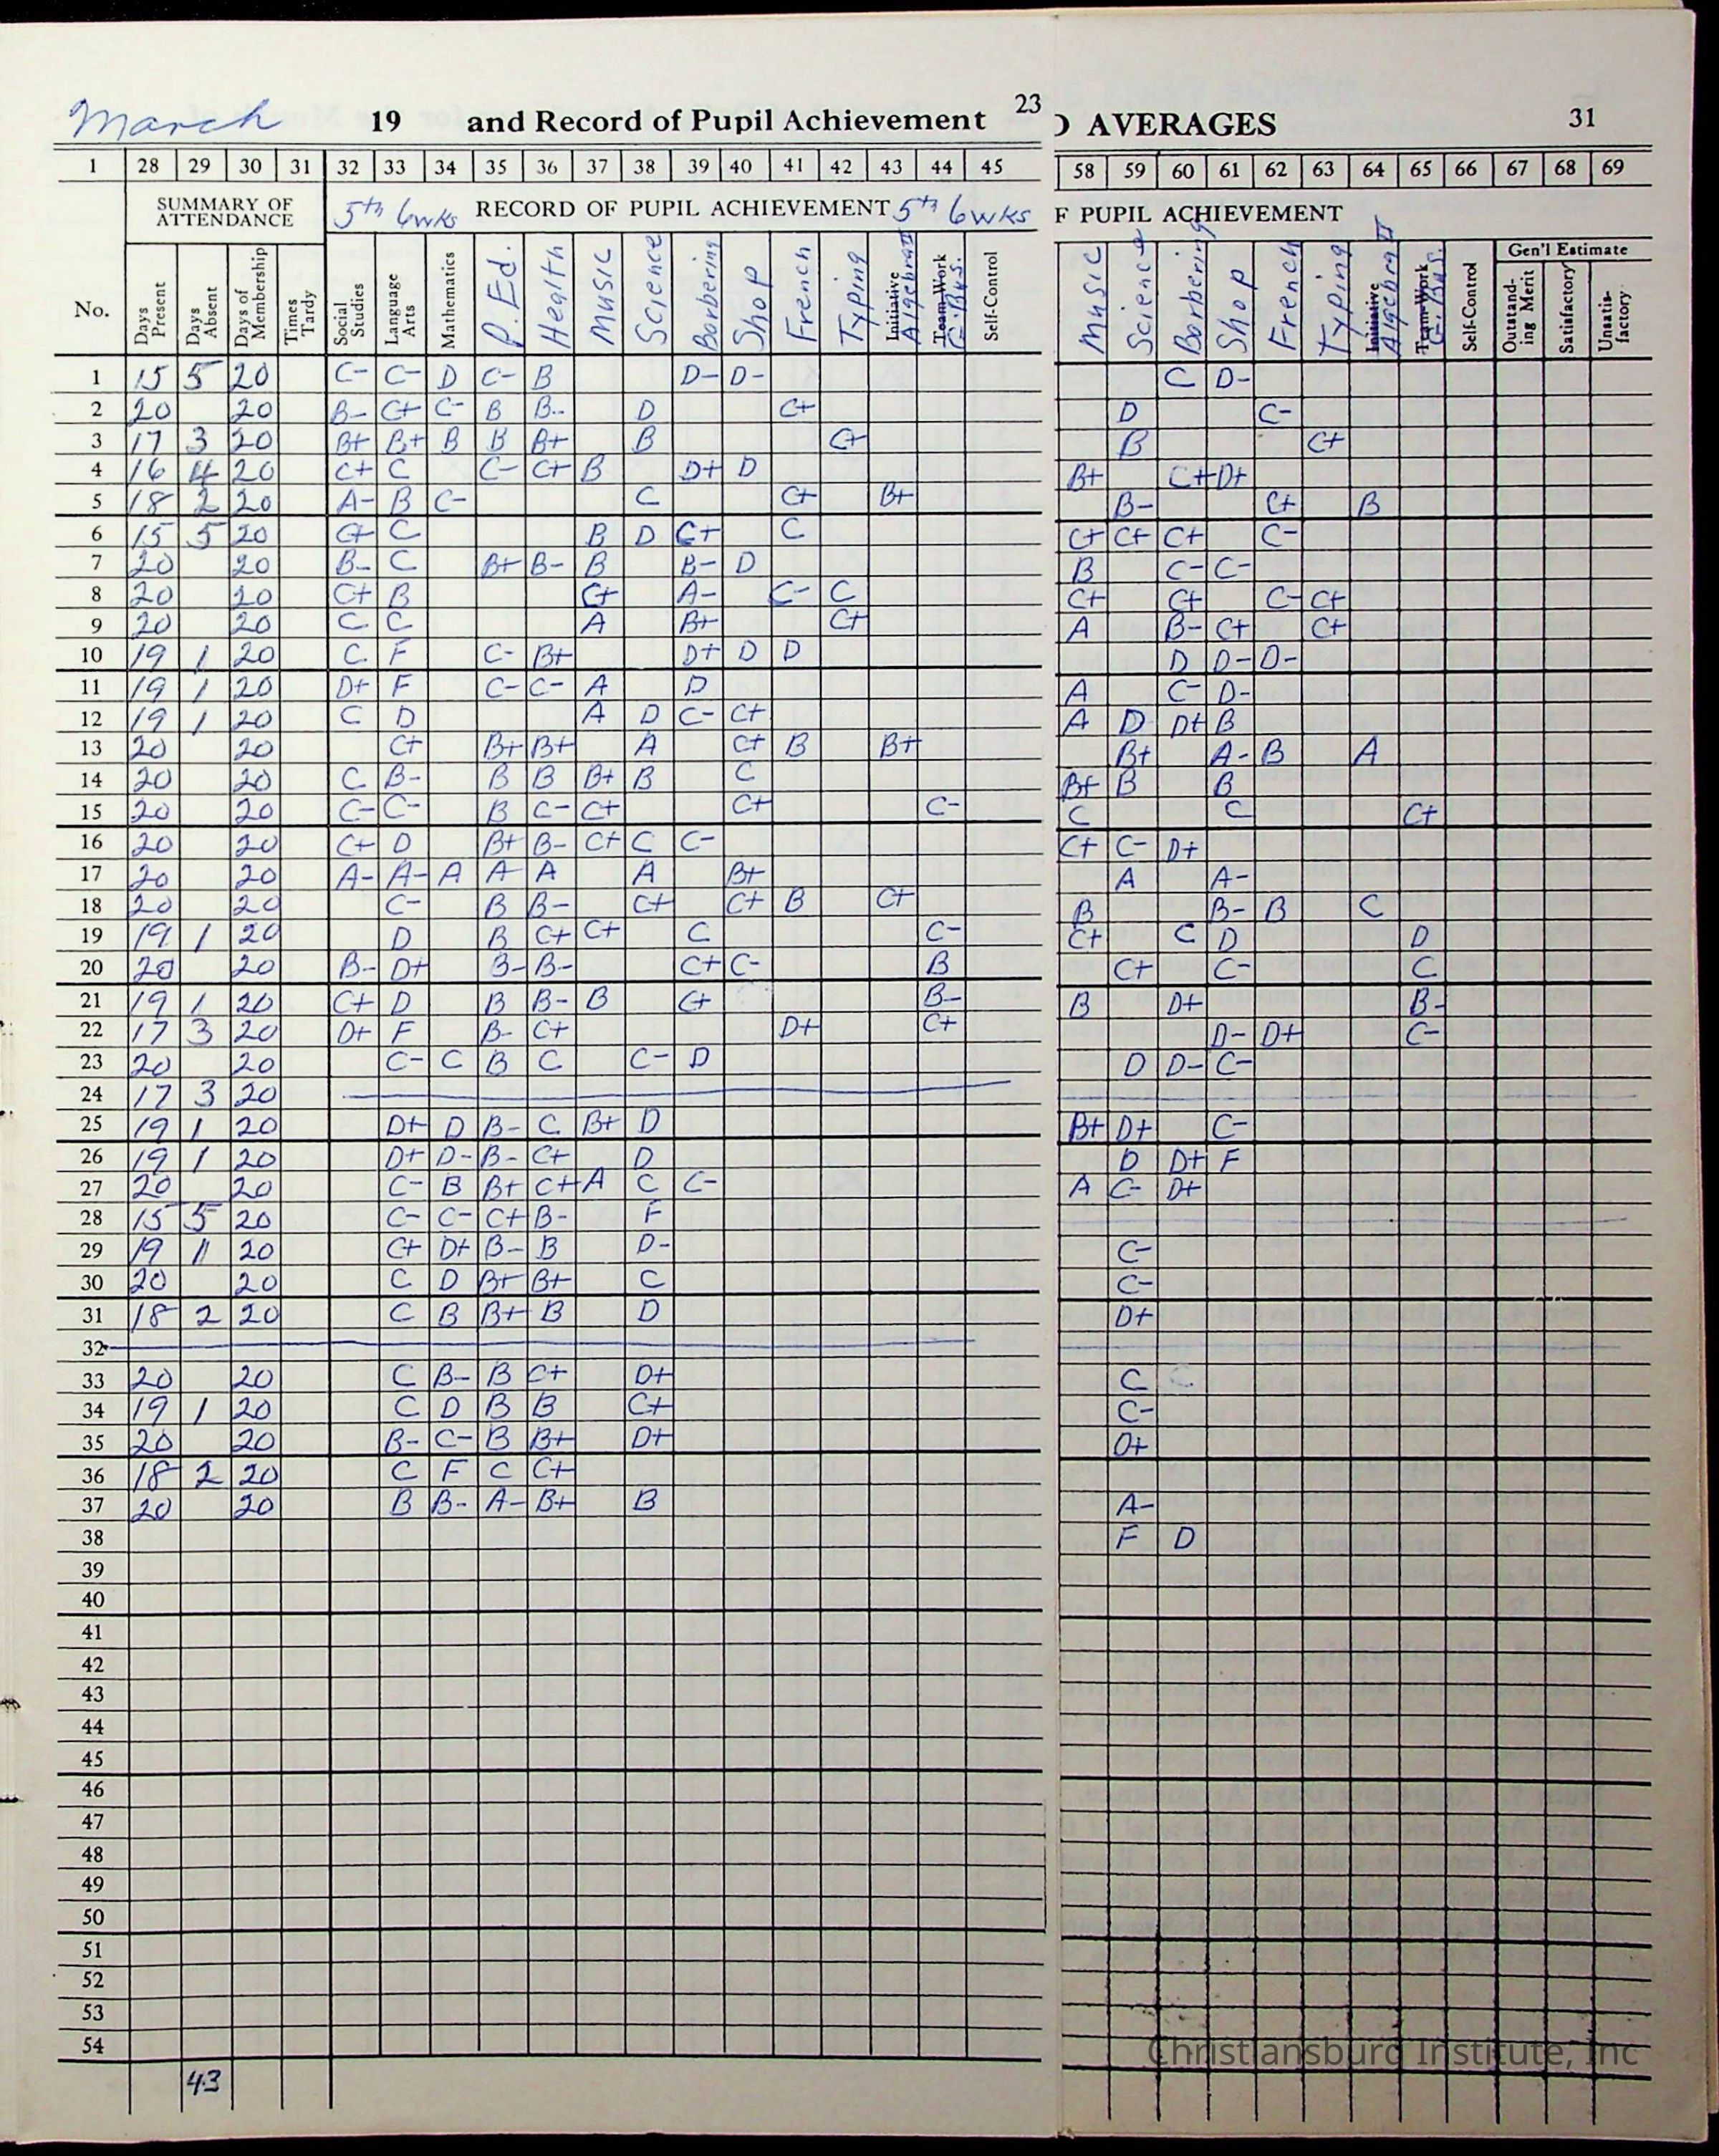 March 19 and Record of Pupil Achievement 23
D AVERAGES 31
1 28 29 30 31 32 33 34 35 36 37 38 39 40 41 42 43 44 45 58 59 60 61 62 63 64 65 66 67 68 69
SUMMARY OF ATTENDANCE 5th 6wks RECORD OF PUPIL ACHIEVEMENT 5th 6wks F PUPIL ACHIEVEMENT
Gen'l Estimate
No. Days Present Days Absent Days of Membership Times Tardy Social Studies Language Arts Mathematics P. Ed. Health Music Science Barbering Shop French Typing Initiative Algebra II Team-Work G. Bus. Self-Control Music Science Barbering Shop French Typing Initiative Algebra II Team-Work G. Bus. Self-Control Outstanding Merit Satisfactory Unsatisfactory
1 15 5 20 C- C- D C- B D- D- C D-
2 20 20 B- C+ C- B B- D C+ D C-
3 17 3 20 B+ B+ B B B+ B C+ B C+
4 16 4 20 C+ C C- C+ B D+ D B+ C+ D+
5 18 2 20 A- B C- C C+ B+ B- C+ B
6 15 5 20 C+ C B D C+ C C+ C+ C+ C-
7 20 20 B- C B+ B- B B- D B C- C-
8 20 20 C+ B C+ A- C- C C+ C+ C- C+
9 20 20 C C A B+ C+ A B- C+ C+
10 19 1 20 C F C- B+ D+ D D D D- D-
11 19 1 20 D+ F C- C- A D A C- D-
12 19 1 20 C D A D C- C+ A D D+ B
13 20 20 C+ B+ B+ A C+ B B+ B+ A- B A
14 20 20 C B- B B B+ B C B+ B B
15 20 20 C- C- B C- C+ C+ C- C C C+
16 20 20 C+ D B+ B- C+ C C- C+ C- D+
17 20 20 A- A- A A A A B+ A A-
18 20 20 C- B B- C+ C+ B C+ B B- B C
19 19 1 20 D B C+ C+ C C- C+ C D D
20 20 20 B- D+ B- B- C+ C- B C+ C- C
21 19 1 20 C+ D B B- B C+ B- B D+ B-
22 17 3 20 D+ F B- C+ D+ C+ D- D+ C-
23 20 20 C- C B C C- D D D- C-
24 17 3 20
25 19 1 20 D+ D B- C B+ D B+ D+ C-
26 19 1 20 D+ D- B- C+ D D D+ F
27 20 20 C- B B+ C+ A C C- A C- D+
28 15 5 20 C- C- C+ B- F
29 19 1 20 C+ D+ B- B D- C-
30 20 20 C D B+ B+ C C-
31 18 2 20 C B B+ B D D+
32
33 20 20 C B- B C+ D+ C C
34 19 1 20 C D B B C+ C-
35 20 20 B- C- B B+ D+ D+
36 18 2 20 C F C C+
37 20 20 B B- A- B+ B A-
38 F D
39
40
41
42
43
44
45
46
47
48
49
50
51
52
53
54
43
Christiansburg Institute, Inc